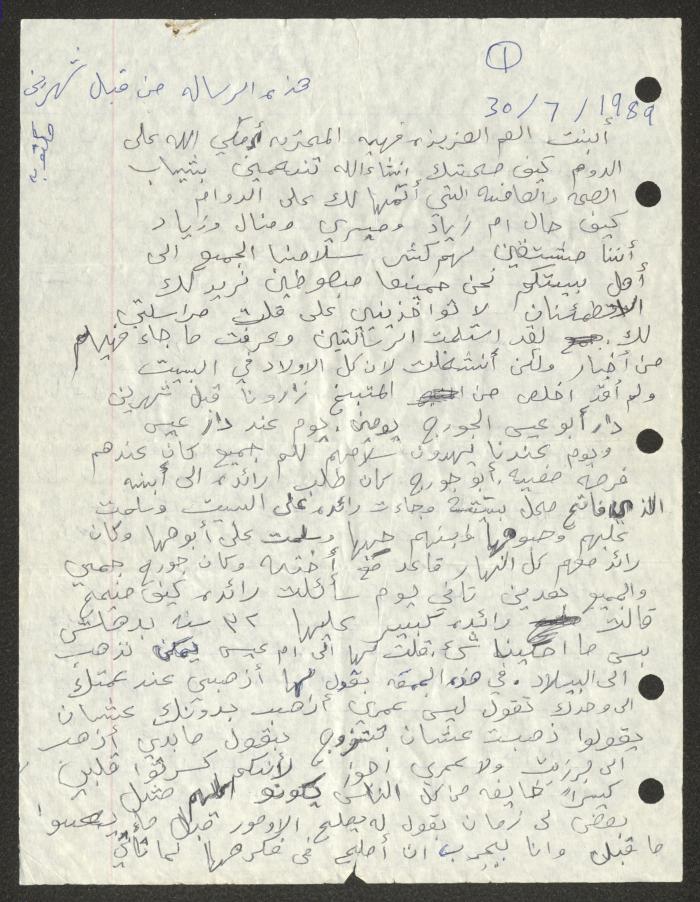 1
هذه الرساله من قبل شهرين
مكتوبه
30/7/1989
أبنت العم العزيزه فهيمه المحترمه أدمكي الله على
الدوم كيف صحتك انشاءالله تنعمين بثياب
الصحه والعافيه التي أتمنها لك على الدوام
كيف حال ام زياد وميسري ومنال وزياد
أننا مشتقين لهم كثير سلامنا الجميع الى
أهل بيتكم نحن جميعا مبصوطين نريد لك
الاطمئنان لا تواخذيني على قلت مراسلتي
لك لقد استلمت الرسالتين وعرفت ما جاء فيهم
من أخبار ولكن أنشغلت لان كل الاولاد في البيت
ولم أقد اخلص من المتبخ زارونا قبل شهرين
دار أبو عيسى الجورج يومين يوم عند دار عيسى
ويوم عندنا يهدون سلامهم لكم جميع كان عندهم
فرصه صفيه أبو جورج كان طلب رائده الى أبنه
الذي فاتح محل وجاءت رائده على البيت وسلمت
عليهم وابنهم حبها وسلمت على أبوها وكان
رائد معهم كل النهار قاعد مع أخته وكان جورج جمبي
والجميع قعدين ثاني يوم سألت رائده كيف
قالت رائده كبيير عليها ٣٢ سنه بدهاش
بس ما احكينا شيء قلت لها الى ام عيسى يمكن تذهب
الى البلاد. في هذه بقول لها أذهبي عند عمتك
الى وحدك تقول ليس عمري أذهب بدونك عشان
يقولوا ذهبت عشان تتزوج بنقول مابدي أذهب
الى ولا عمري اجوز لأنكم كسرتوا قلبي
كثيراً خايفه من كل الناس يكونو مثل
بعض لى زمان بقول له يصلح الامور قبل ما
ما قبل وانا بجرب ان أصلح في فكرها لما تأتي